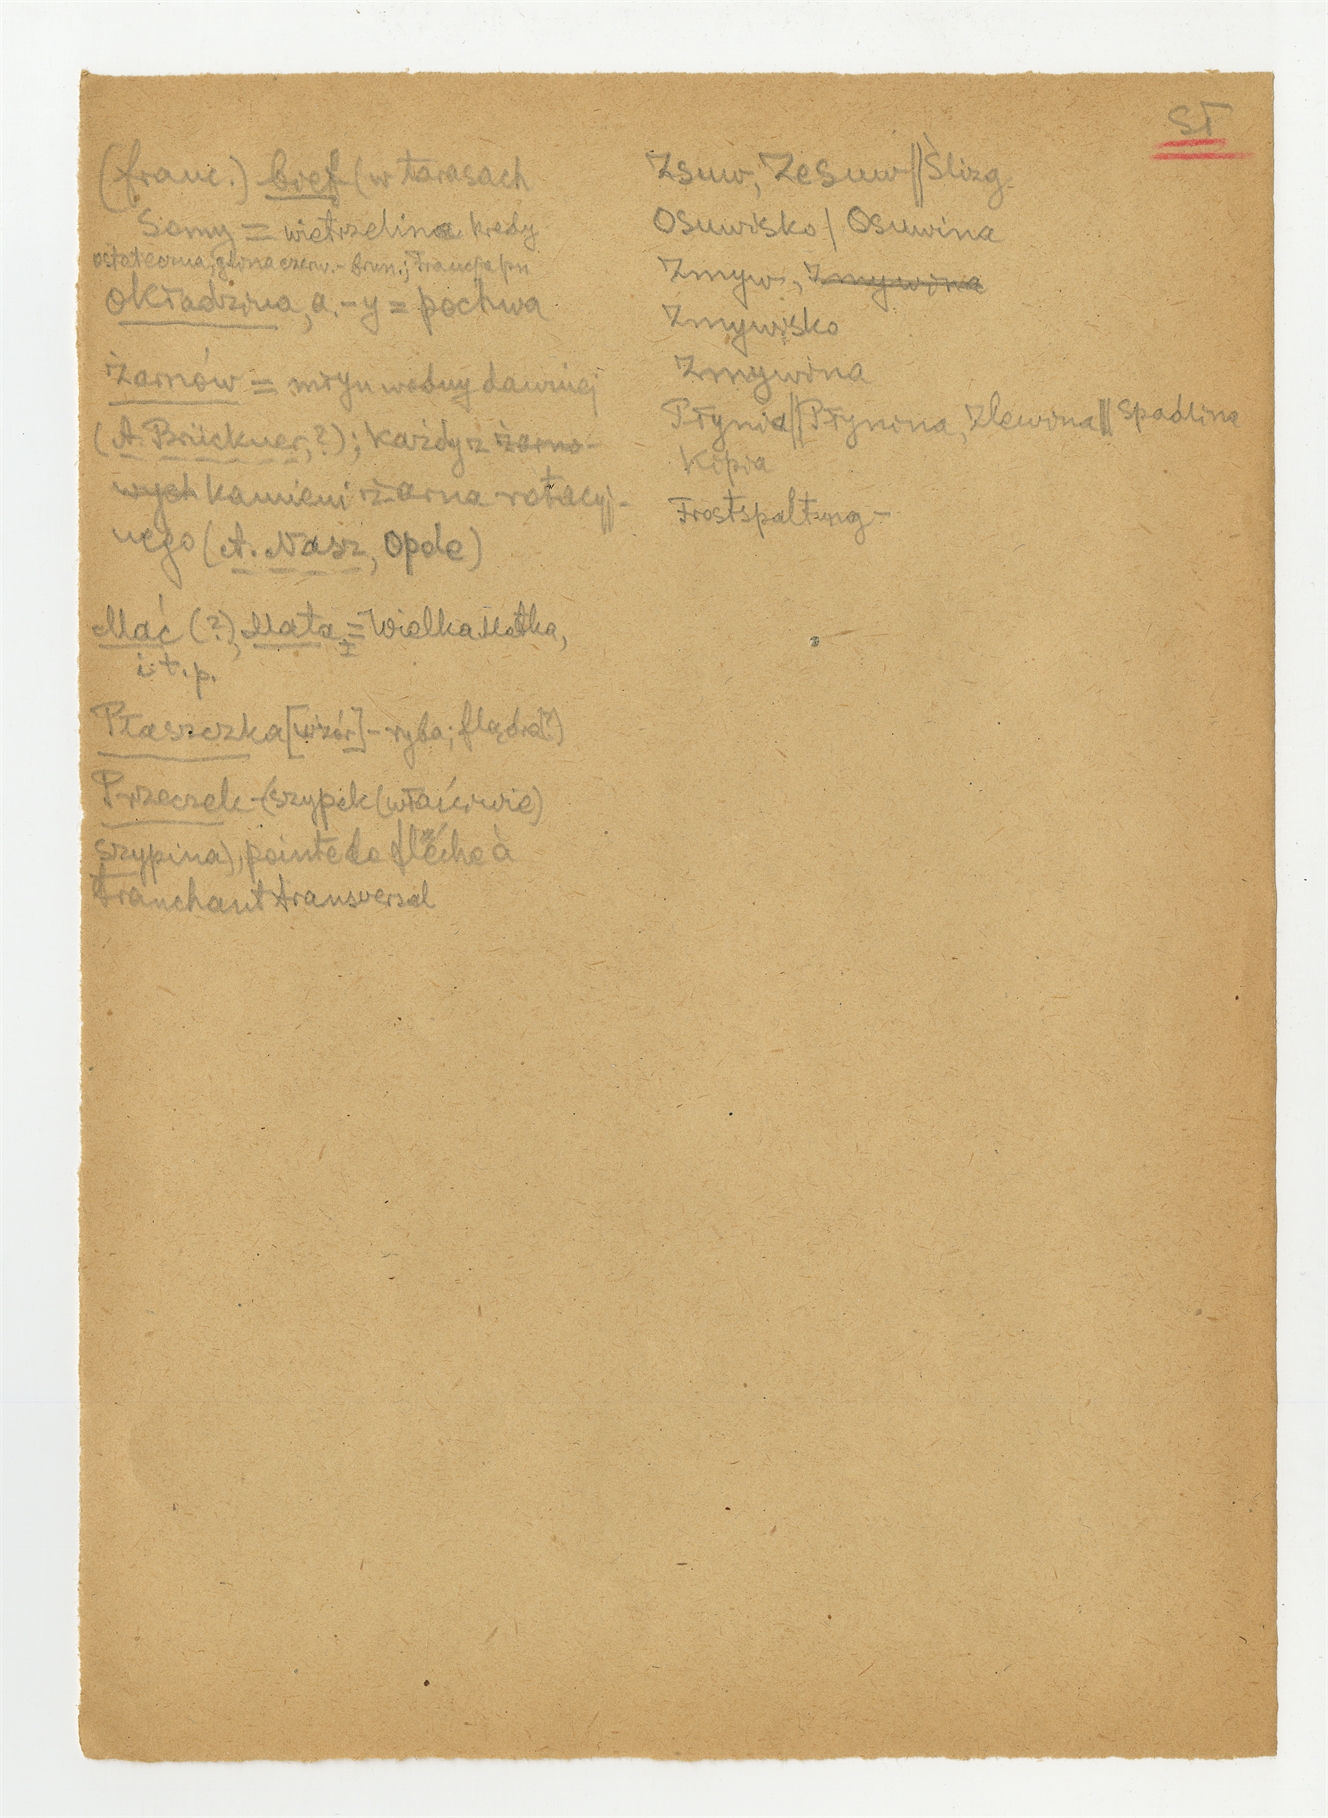 ST
(franc.) bief (w tarasach
Somy = wietrzelina kredy
ostateczna, glina czerw.-brun.; Francja pn
Okładzina, a.-y = pochwa
Żarnów = młyn wodny dawniej
(A. Brückner, ?); każdy z żarno-
wych kamieni żarna rotacyj-
nego (A. Nasz, Opole)
Mać (?), Mata = Wielka Matka,
i t. p.
Płaszczka [wzór] - ryba; flądra?)
Przeczek - (szypek (właściwie)
szypina), pointe de flèche à
tranchant transversal
Zsuw, Zesuw || Ślizg
Osuwisko / Osuwina
Zmyw, Zmywina
Zmywisko
Zmywina
Płynia || Płynina, Zlewina || Spadlina
Kipia
Frostspaltung -